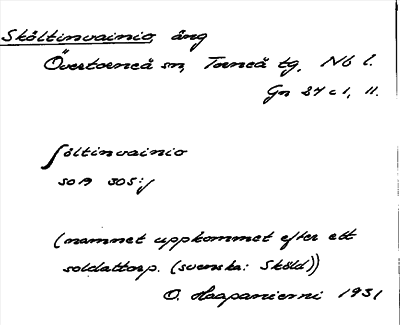 Sköltinvainio, äng
Övertorneå sn, Torneå tg, Nb l.
Gn 87 c 1, 11.
ʃöltinvainio
so A 305:/
(namnet uppkommet efter ett
soldattorp. (svenska: Sköld))
O. Haapaniemi 1931